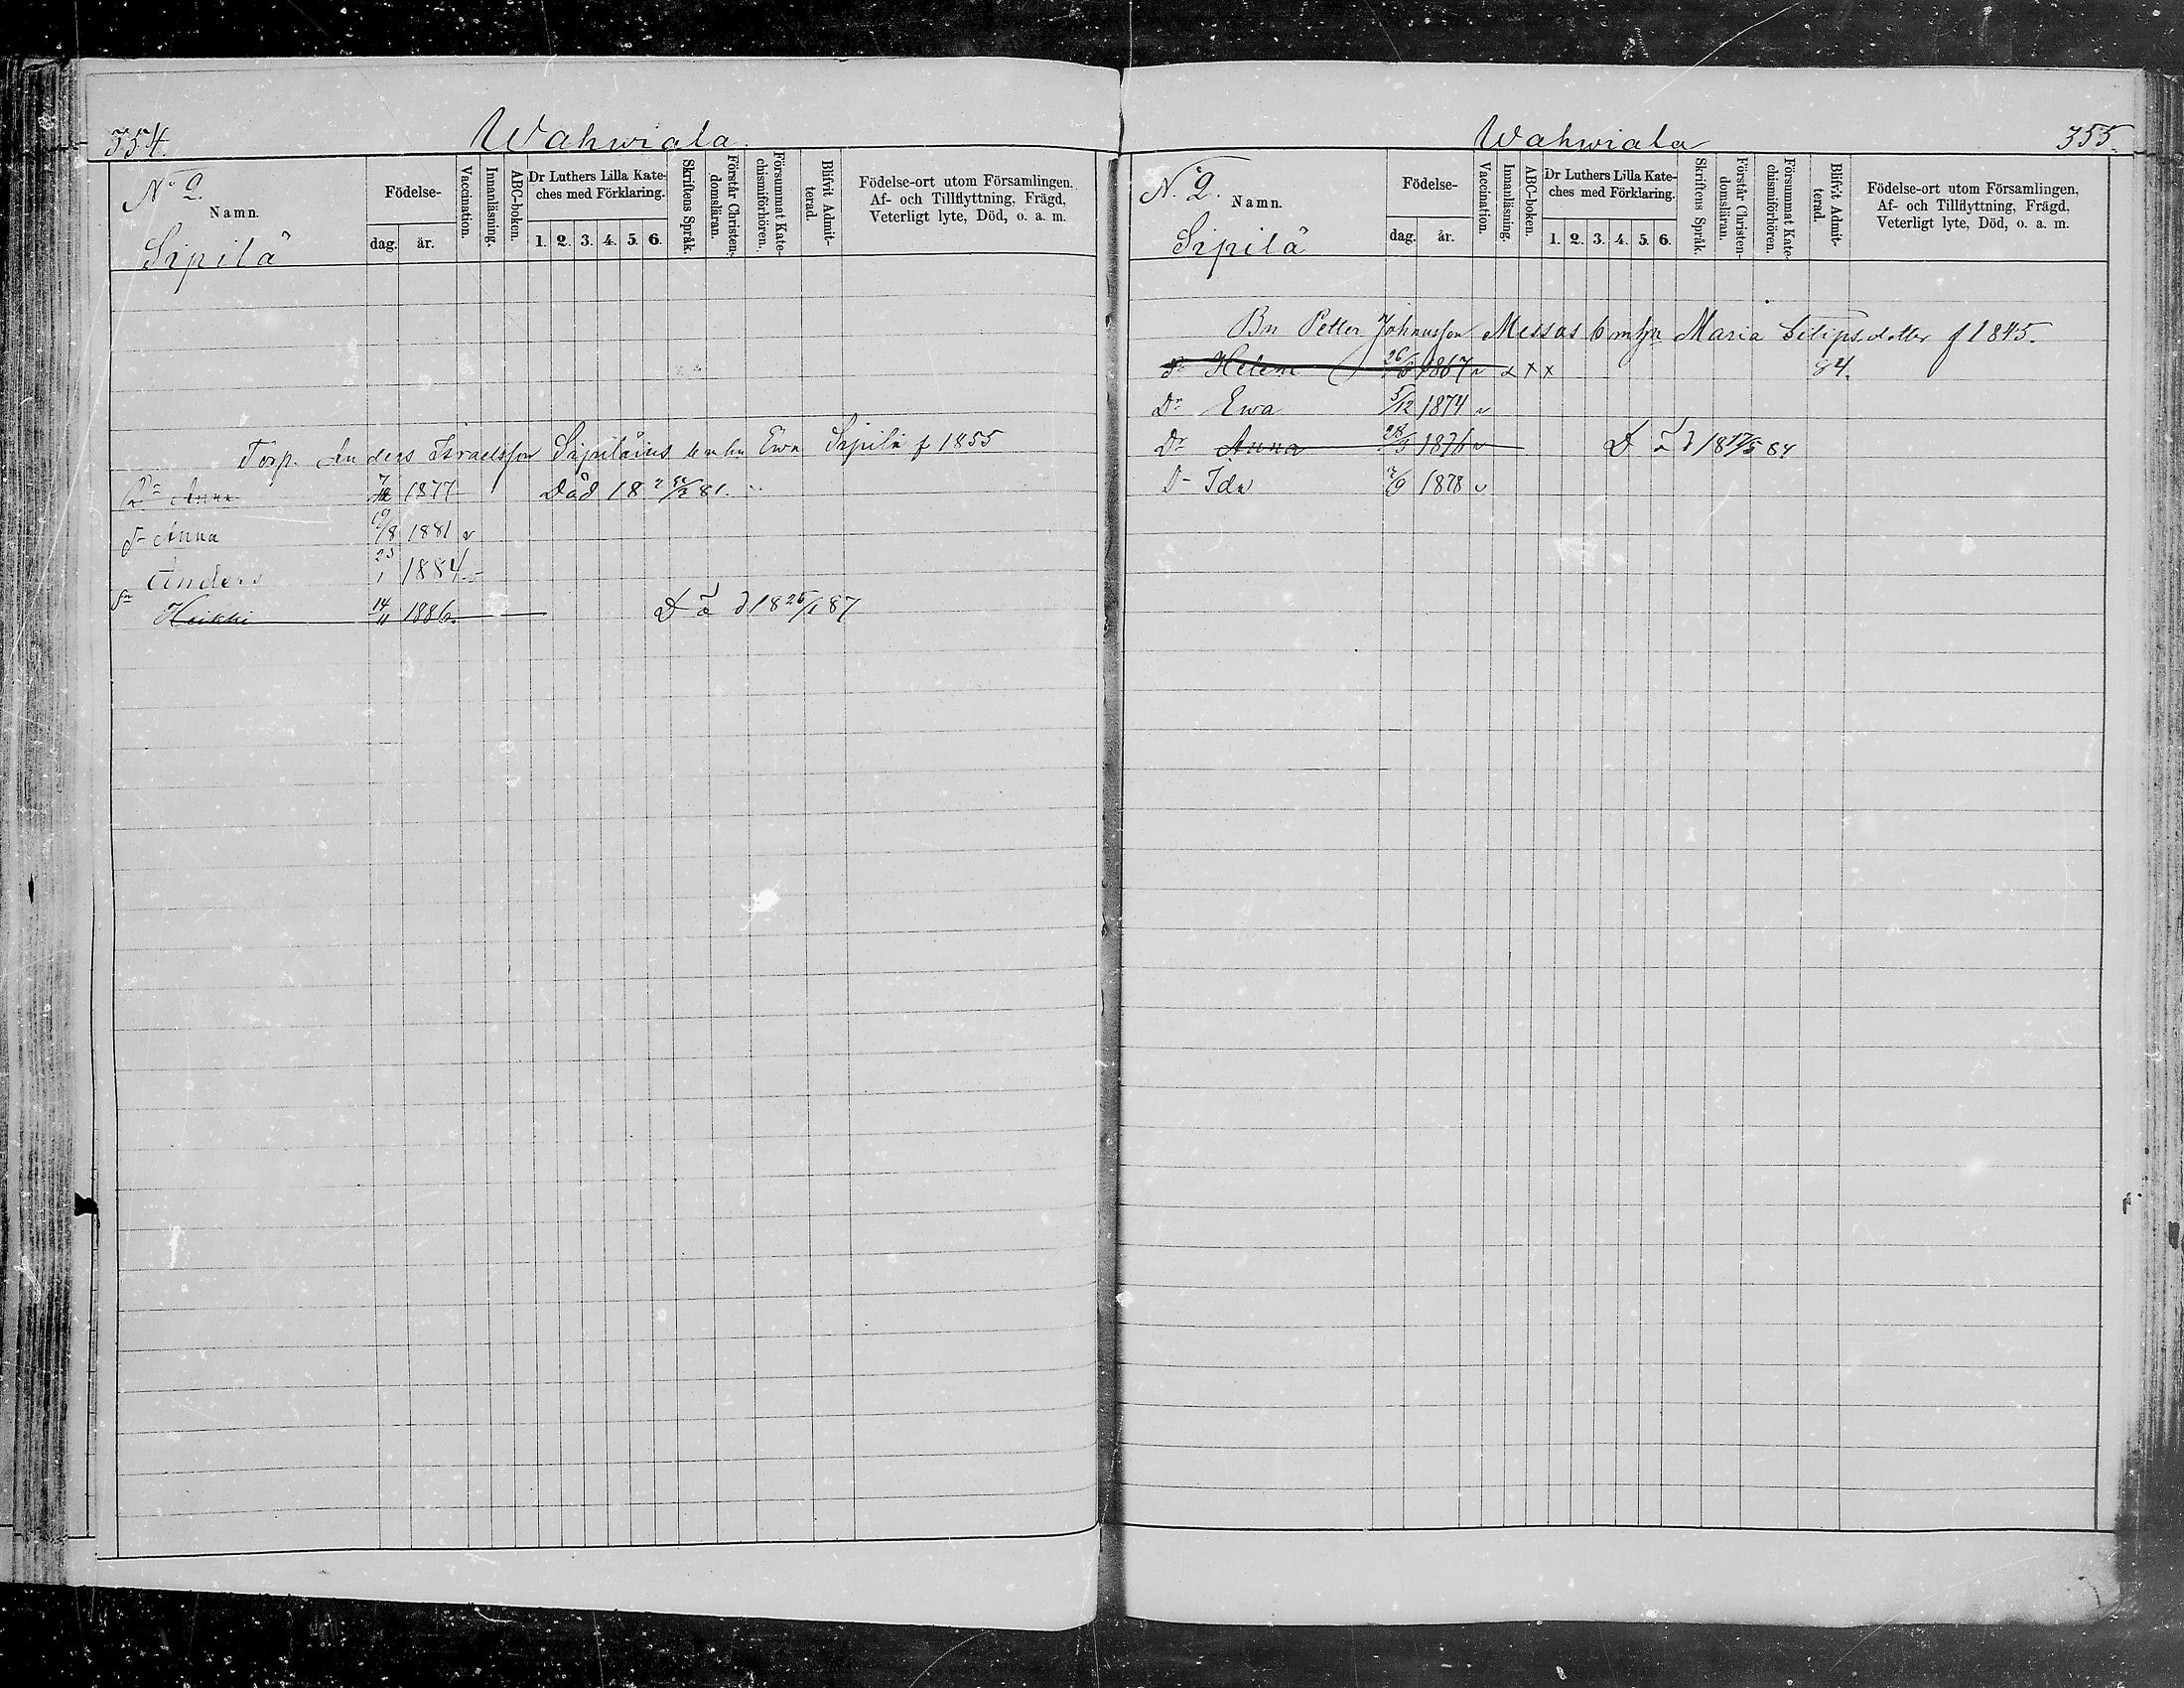 354.
Wahwiala.
No 2.
Namn.
Sipilä
Födelse-
dag. år.
Vaccination.
Innanläsning.
ABC-boken.
Dr Luthers Lilla Kate-
ches med Förklaring.
1. 2. 3. 4. 5. 6.
Skriftens Språk.
Förstår Christen-
domsläran.
Försummat Kate-
chismiförhören.
Blifvit Admit-
terad.
Födelse-ort utom Församlingen.
Af- och Tillflyttning, Frägd,
Veterligt lyte, Död, o. a. m.
Torp. Anders Israelsson Sipiläinis Ewa Sipilä f 1855
Dr Anna 1877 Död 18 81.
Dr Anna 19/8 1881 v
Anders 23/1 1884 v
Sn Heikki 14/11 1886 D 18 25/1 87
Wahwiala
355.
No 2.
Namn.
Sipilä
Födelse-
dag. år.
Vaccination.
Innanläsning.
ABC-boken.
Dr Luthers Lilla Kate-
ches med Förklaring.
1. 2. 3. 4. 5. 6.
Skriftens Språk.
Förstår Christen-
domsläran.
Försummat Kate-
chismiförhören.
Blifvit Admit-
terad.
Födelse-ort utom Församlingen,
Af- och Tillflyttning, Frägd,
Veterligt lyte, Död, o. a. m.
Bn Petter Johansson Messas Maria Filipsdotter f 1845.
Dr Helena 1867 v x x x 84.
Dr Ewa 5/12 1874 v
Dr Anna 28/3 1876 v D 18 17/5 84
Dr Ida 1878 v